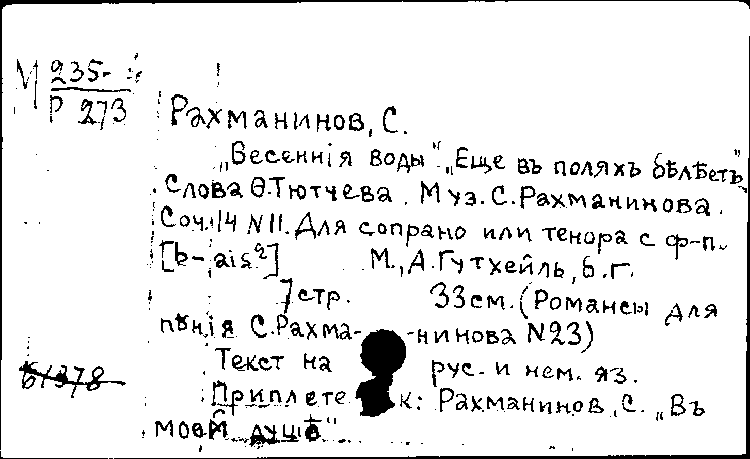 М 235-
Р 273
Рахманинов, С.
„Весеннiя воды". „Еще въ поляхъ бѣлѣетъ"
Слова Ѳ.Тютчева. Муз. С. Рахманинова.
Соч. 14 N11. Для сопрано или тенора с ф-п.
[b - ais²] М., А. Гутхейль, б.г.
7 стр. 33см. (Романсы для
пѣнiя С. Рахма- -нинова N23)
Текст на рус. и нем. яз.
61378
Приплете к: Рахманинов, С. „Въ
моей душѣ"